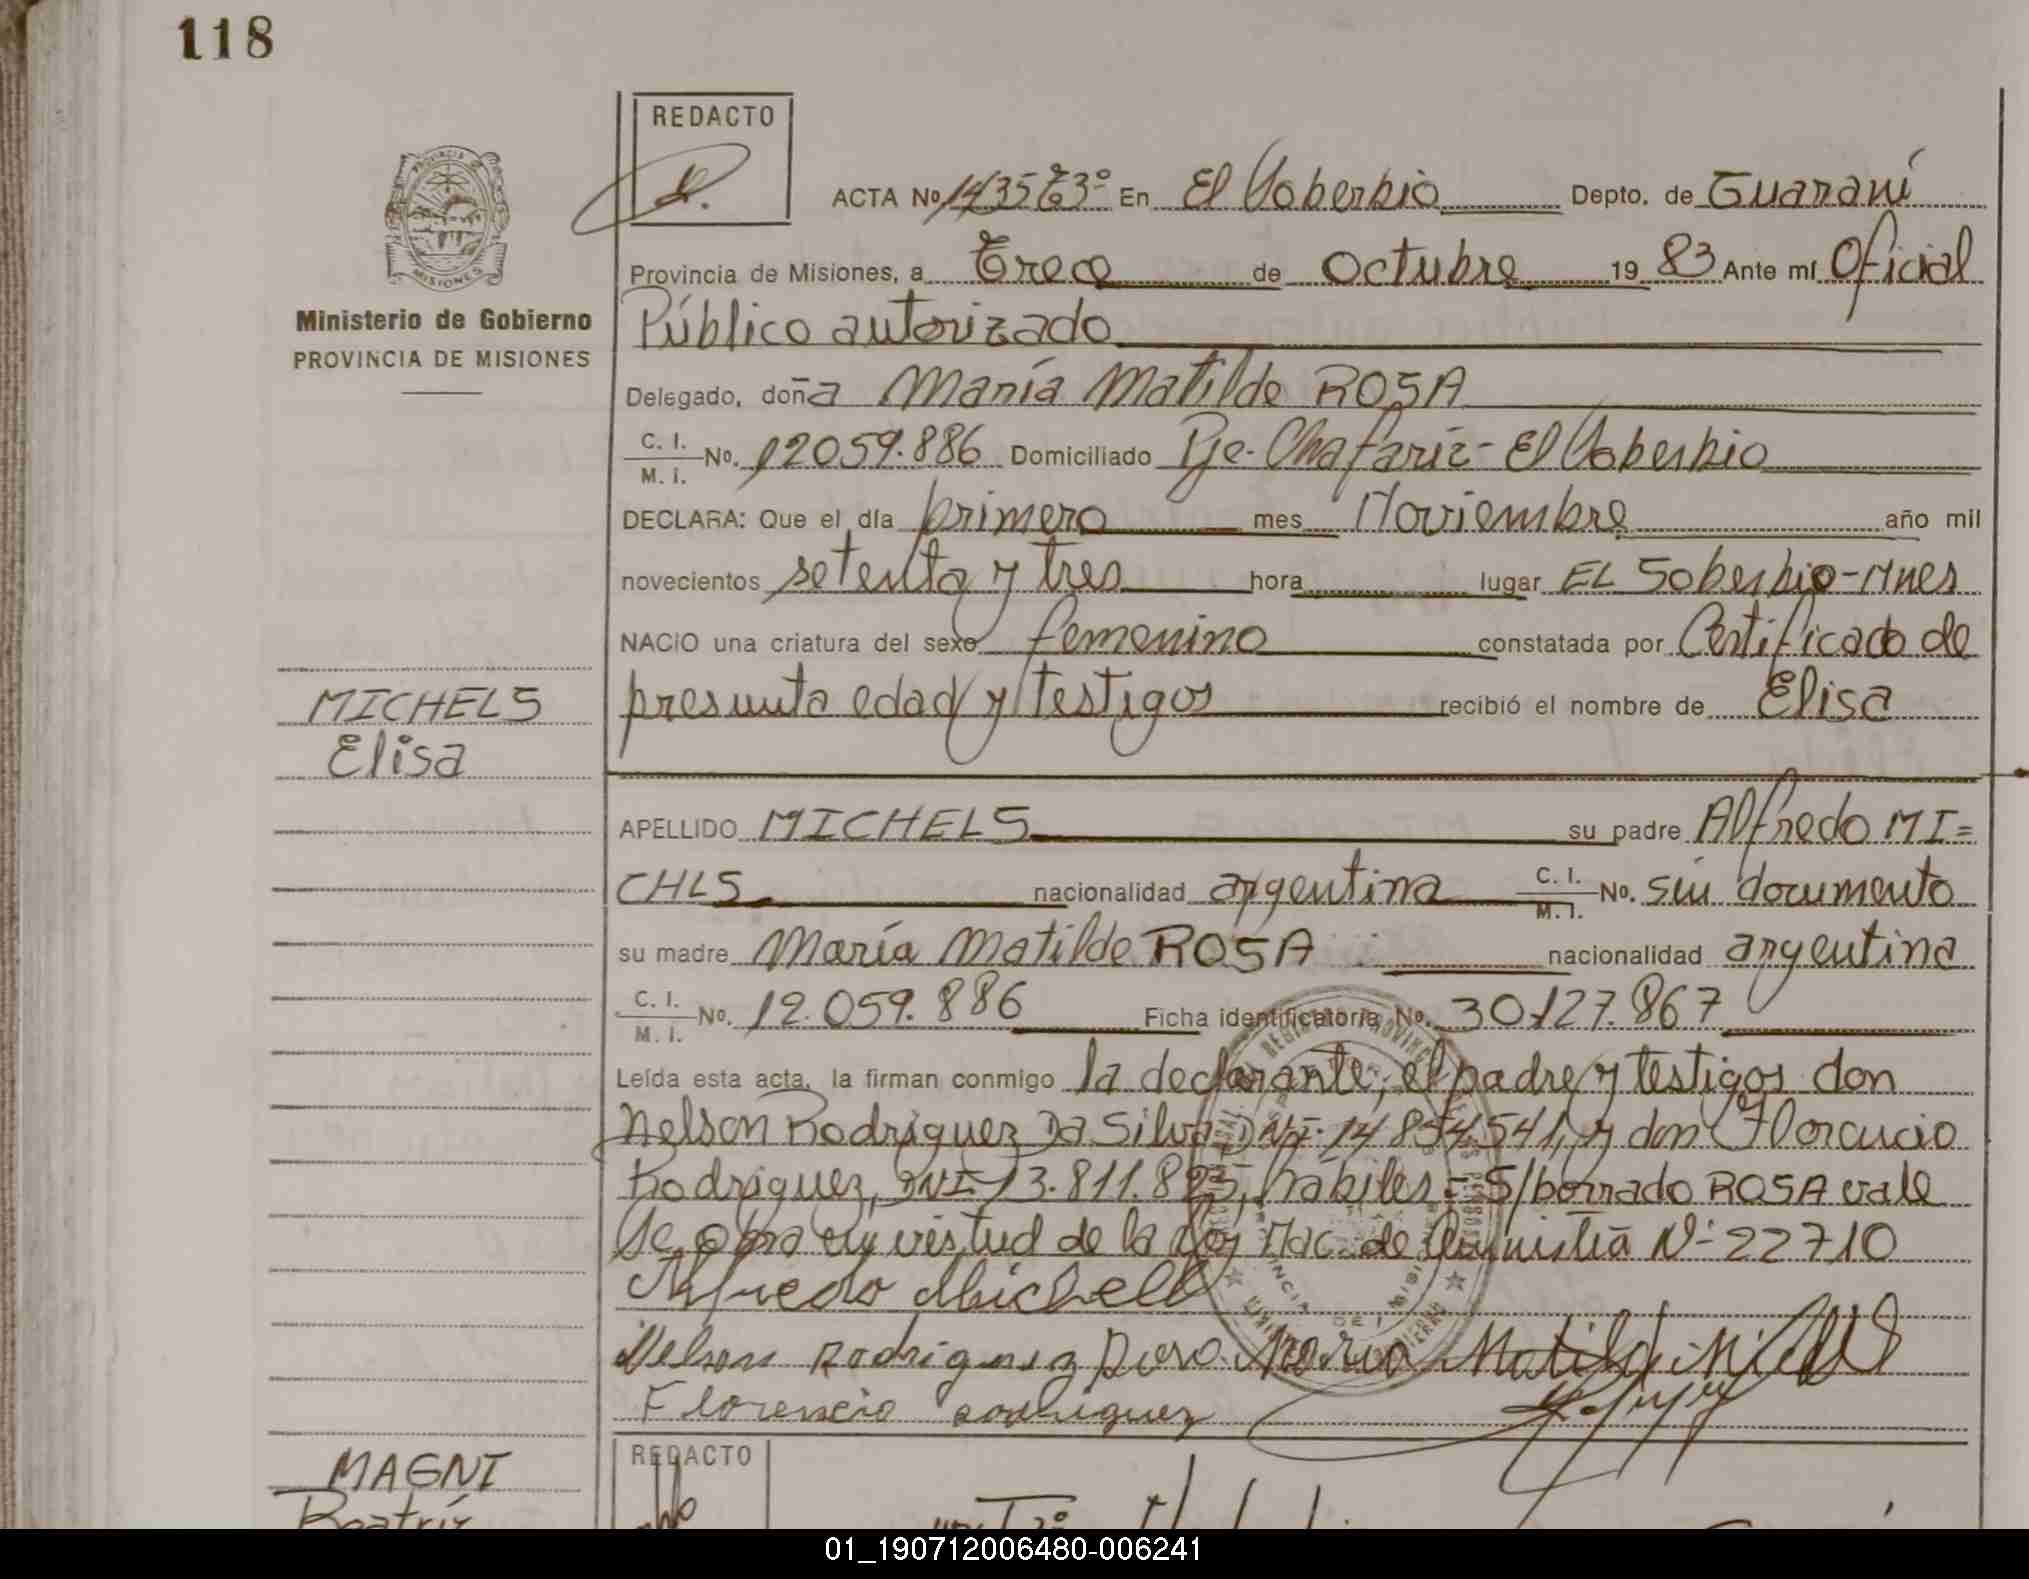 118
REDACTO
PROVINCIA
MISIONES
Ministerio de Gobierno
PROVINCIA DE MISIONES
ACTA Nº 1435 T3º En El Soberbio Depto. de Guaraní
Provincia de Misiones, a Trece de Octubre 19 83 Ante mí Oficial
Público autorizado
Delegado, doña María Matilde ROSA
C. I. M. I. No. 12059.886 Domiciliado Pje. Chafariz - El Soberbio
DECLARA: Que el día primero mes Noviembre año mil
novecientos setenta y tres hora lugar EL Soberbio-Mnes
NACIO una criatura del sexo femenino constatada por Certificado de
presunta edad y testigos recibió el nombre de Elisa
MICHELS
Elisa
APELLIDO MICHELS su padre Alfredo MI=
CHLS nacionalidad argentina C. I. M. I. No. sin documento
su madre María Matilde ROSA nacionalidad argentina
C. I. M. I. No. 12.059.886 Ficha identificatoria No. 30.127.867
Leída esta acta, la firman conmigo la declarante, el padre y testigos don
Nelson Rodriguez Da Silva DNI. 14.854.541, y don Florencio
Rodriguez, DNI 13.811.895, hábiles = S/borrado ROSA vale
Se obra en virtud de la Ley Nac. de Amnistía Nº 22710
Alfredo Michels
Nelson Rodriguez Maria Matilde Michels
Florencio Rodriguez
MAGNI
Beatriz
REDACTO
01_190712006480-006241